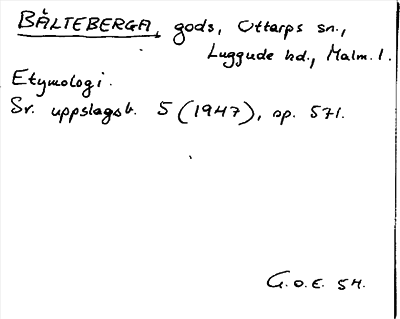 BÄLTEBERGA, gods, Ottarps sn.,
Luggude hd., Malm. l.
Etymologi.
Sv. uppslagsb. 5 (1947), sp. 571.
G.O.E. 54.